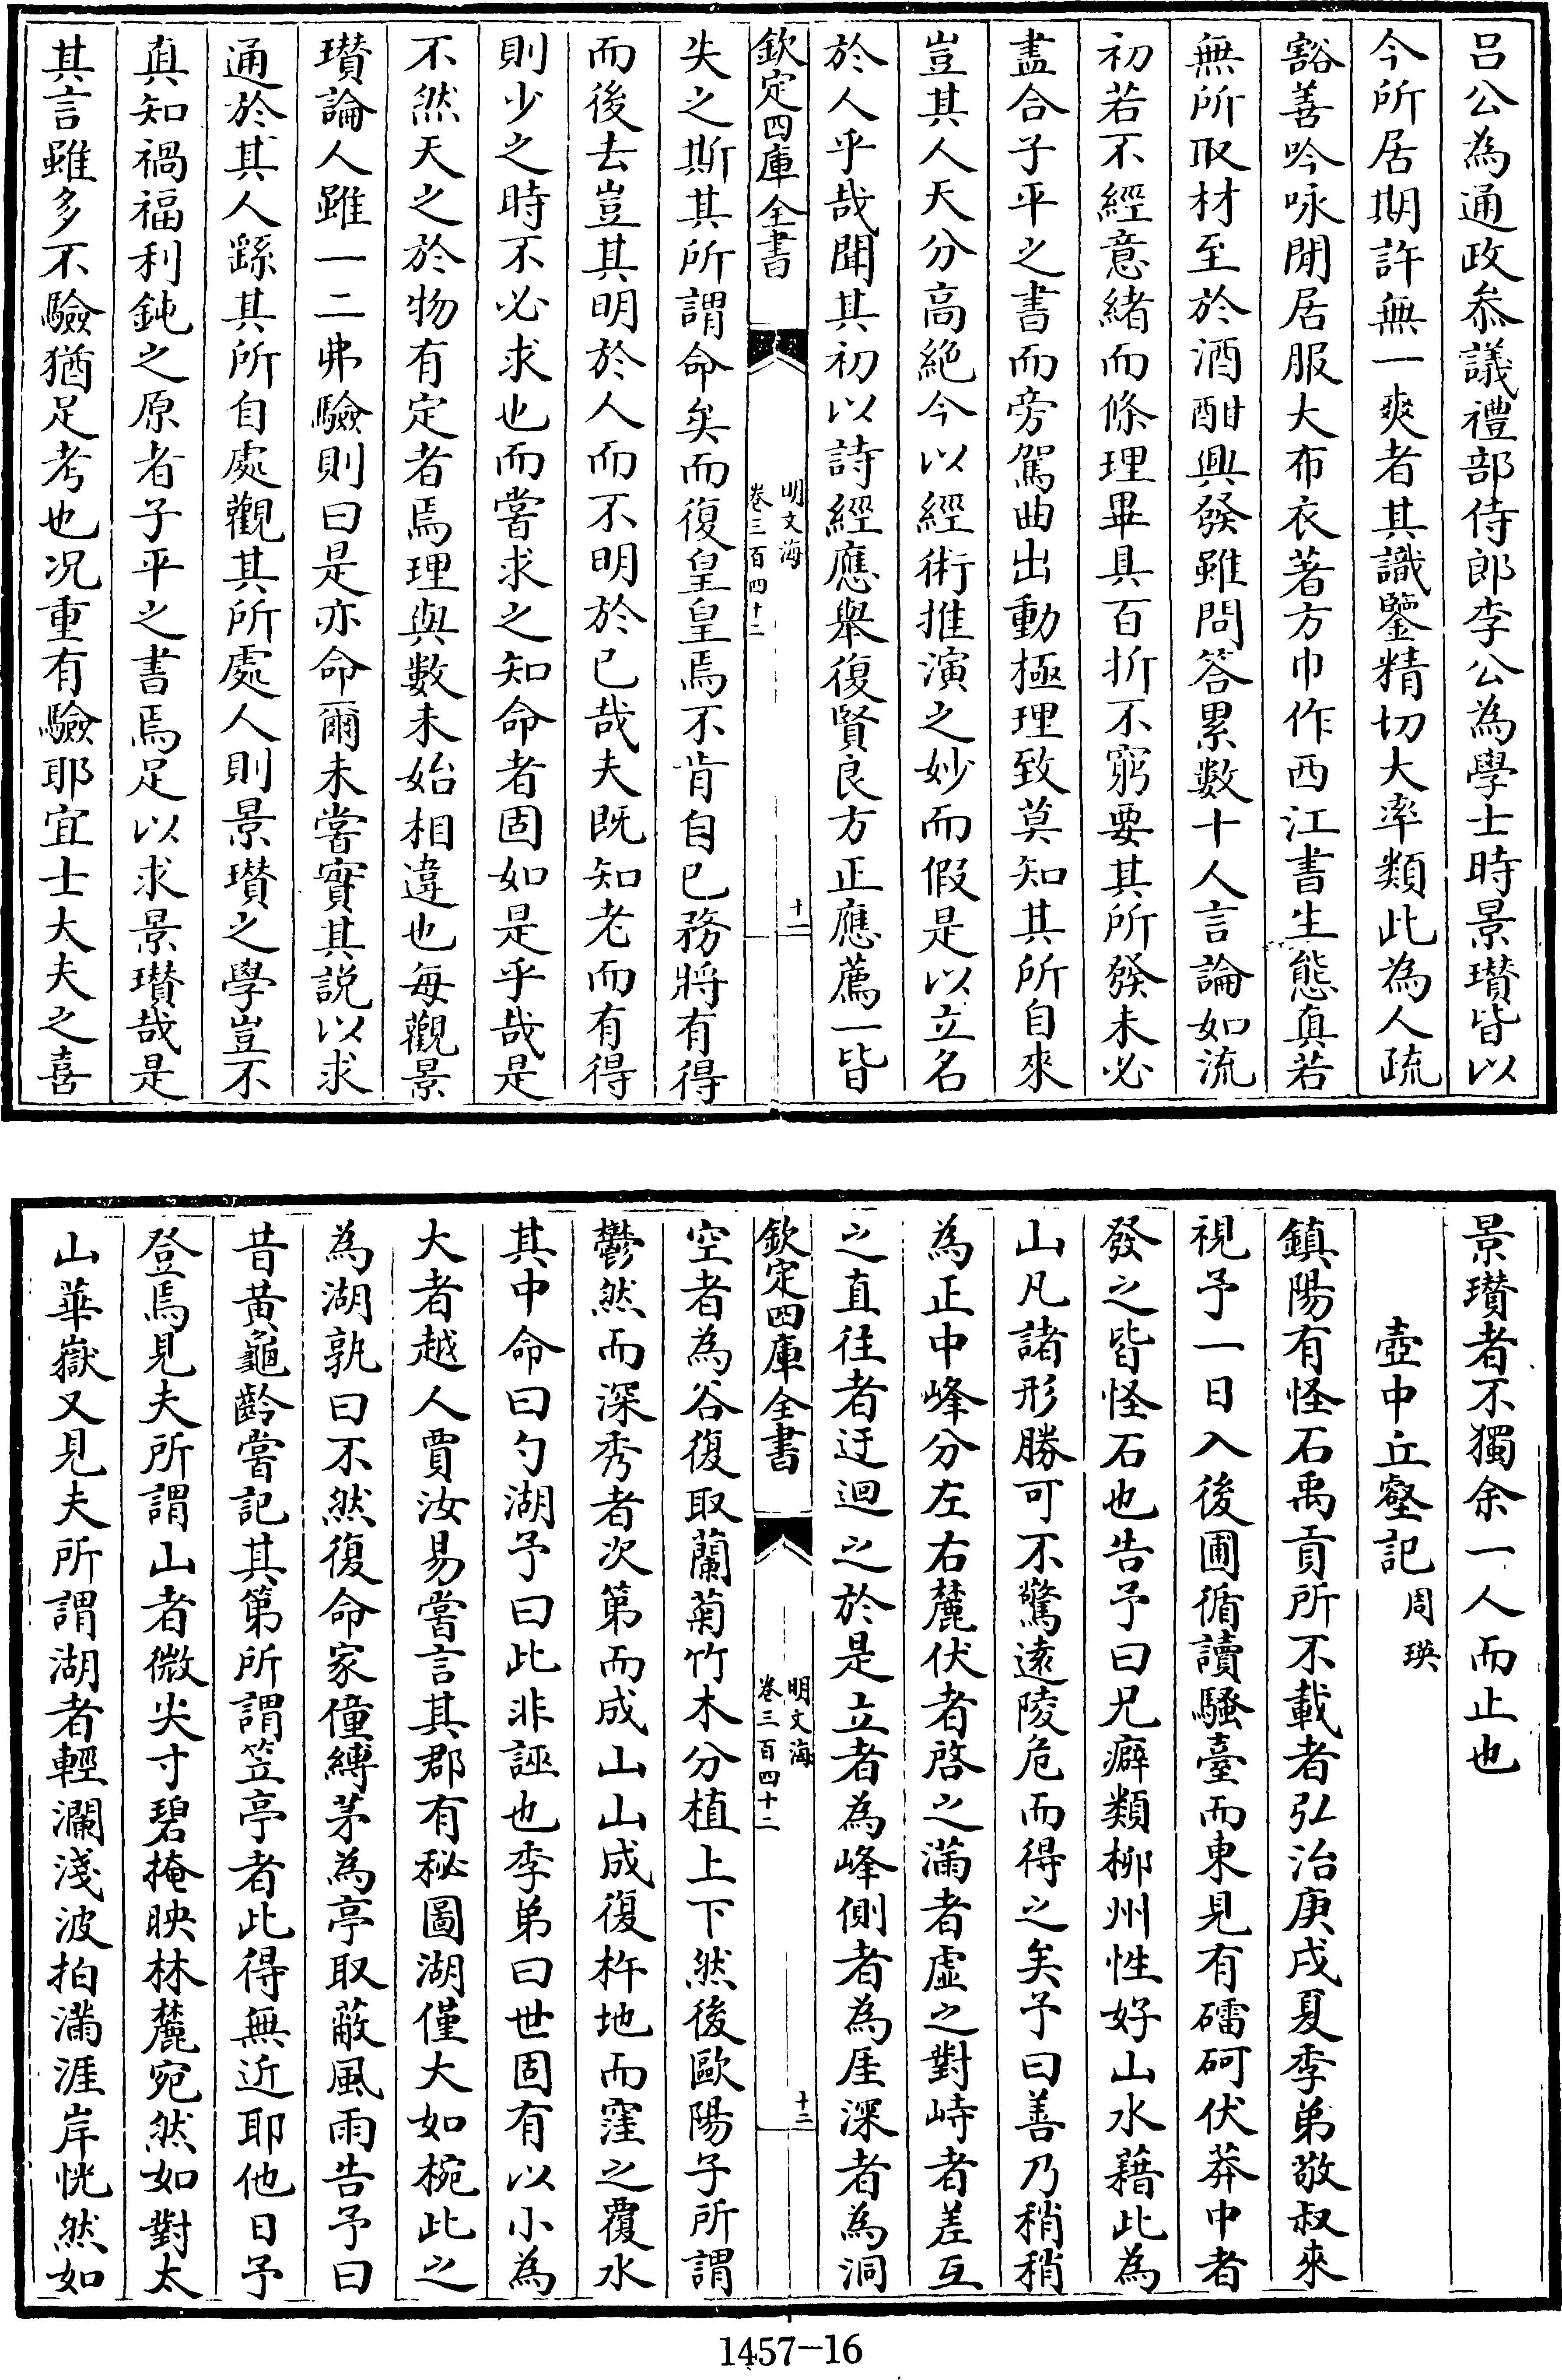 呂公為通政叅議禮部侍郎李公為學士時景瓚皆以
今所居期許無一爽者其識鑒精切大率類此為人疏
豁善吟咏閒居服大布衣著方巾作西江書生態真若
無所取材至於酒酣興發雖問答累數十人言論如流
初若不經意緒而條理畢具百折不窮要其所發未必
盡合子平之書而旁駕曲出動極理致莫知其所自來
豈其人天分高絶今以經術推演之妙而假是以立名
於人乎哉聞其初以詩經應舉復賢良方正應薦一皆
欽定四庫全書
明文海
卷三百四十二
十一
失之斯其所謂命矣而復皇皇焉不肯自已務將有得
而後去豈其明於人而不明於已哉夫既知老而有得
則少之時不必求也而嘗求之知命者固如是乎哉是
不然天之於物有定者焉理與數未始相違也每觀景
瓚論人雖一二弗驗則曰是亦命爾未嘗實其説以求
通於其人繇其所自處觀其所處人則景瓚之學豈不
真知禍福利鈍之原者子平之書焉足以求景瓚哉是
其言雖多不驗猶足考也况重有驗耶宜士大夫之喜
景瓚者不獨余一人而止也
壺中丘壑記
周瑛
鎮陽有怪石禹貢所不載者弘治庚戌夏季弟敬叔來
視予一日入後圃循讀騷臺而東見有礌砢伏莽中者
發之皆怪石也告予曰兄癖類栁州性好山水藉此為
山凡諸形勝可不驚遠陵危而得之矣予曰善乃稍稍
為正中峰分左右麓伏者啓之滿者虛之對峙者差互
之直往者迂迴之於是立者為峰側者為厓深者為洞
欽定四庫全書
明文海
卷三百四十二
十二
空者為谷復取蘭菊竹木分植上下然後歐陽子所謂
鬱然而深秀者次第而成山山成復杵地而窪之覆水
其中命曰勺湖予曰此非誣也季弟曰世固有以小為
大者越人賈汝易嘗言其郡有秘圖湖僅大如椀此之
為湖孰曰不然復命家僮縛茅為亭取蔽風雨告予曰
昔黃龜齡嘗記其第所謂笠亭者此得無近耶他日予
登焉見夫所謂山者微尖寸碧掩映林麓宛然如對太
山華嶽又見夫所謂湖者輕瀾淺波拍滿涯岸恍然如
1457-16